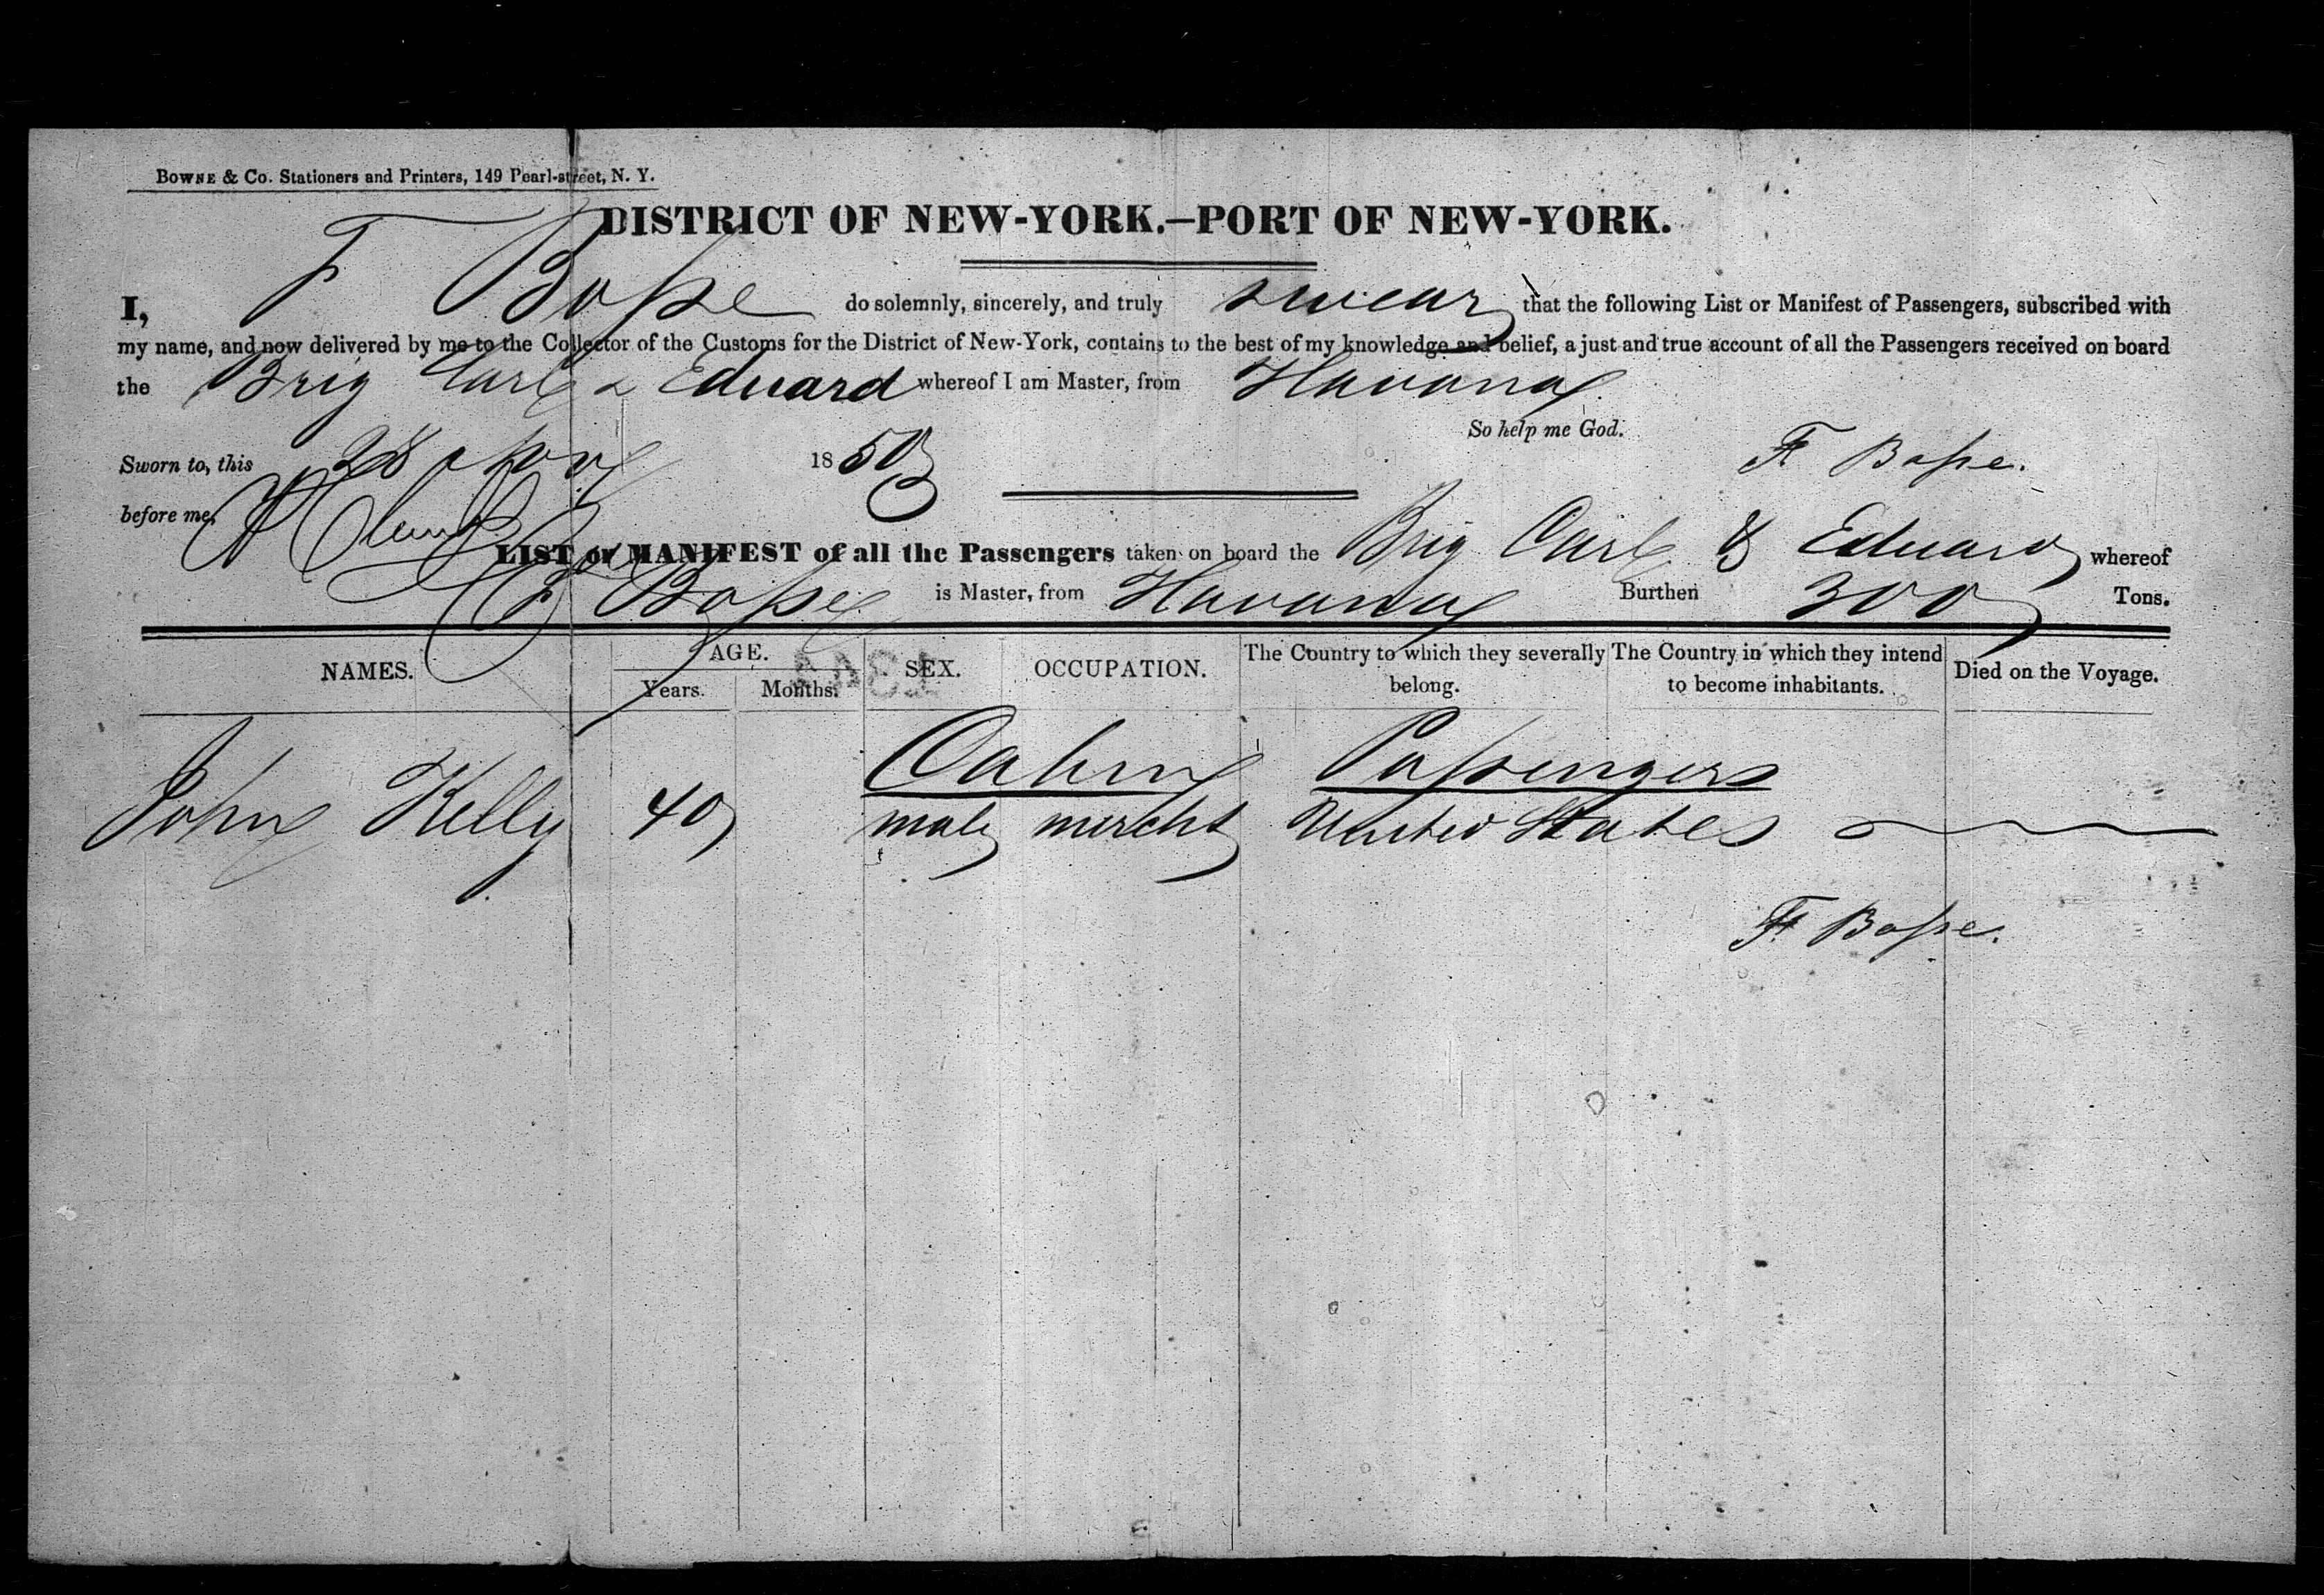 BOWNE & Co. Stationers and Printers, 149 Pearl-street, N. Y.
DISTRICT OF NEW-YORK.—PORT OF NEW-YORK.
I, F Bosse do solemnly, sincerely, and truly swear that the following List or Manifest of Passengers, subscribed with
my name, and now delivered by me to the Collector of the Customs for the District of New-York, contains to the best of my knowledge and belief, a just and true account of all the Passengers received on board
the Brig Carl & Eduard whereof I am Master, from Havana
So help me God.
Sworn to, this 28 Nov 1850 F. Bosse.
before me,
LIST or MANIFEST of all the Passengers taken on board the Brig Carl & Eduard whereof
F Bosse is Master, from Havana Burthen 300 Tons.
NAMES. AGE. Years. Months. SEX. OCCUPATION. The Country to which they severally belong. The Country in which they intend to become inhabitants. Died on the Voyage.
Cabin Passengers
John Kelly 40 male mercht United States
F. Bosse.